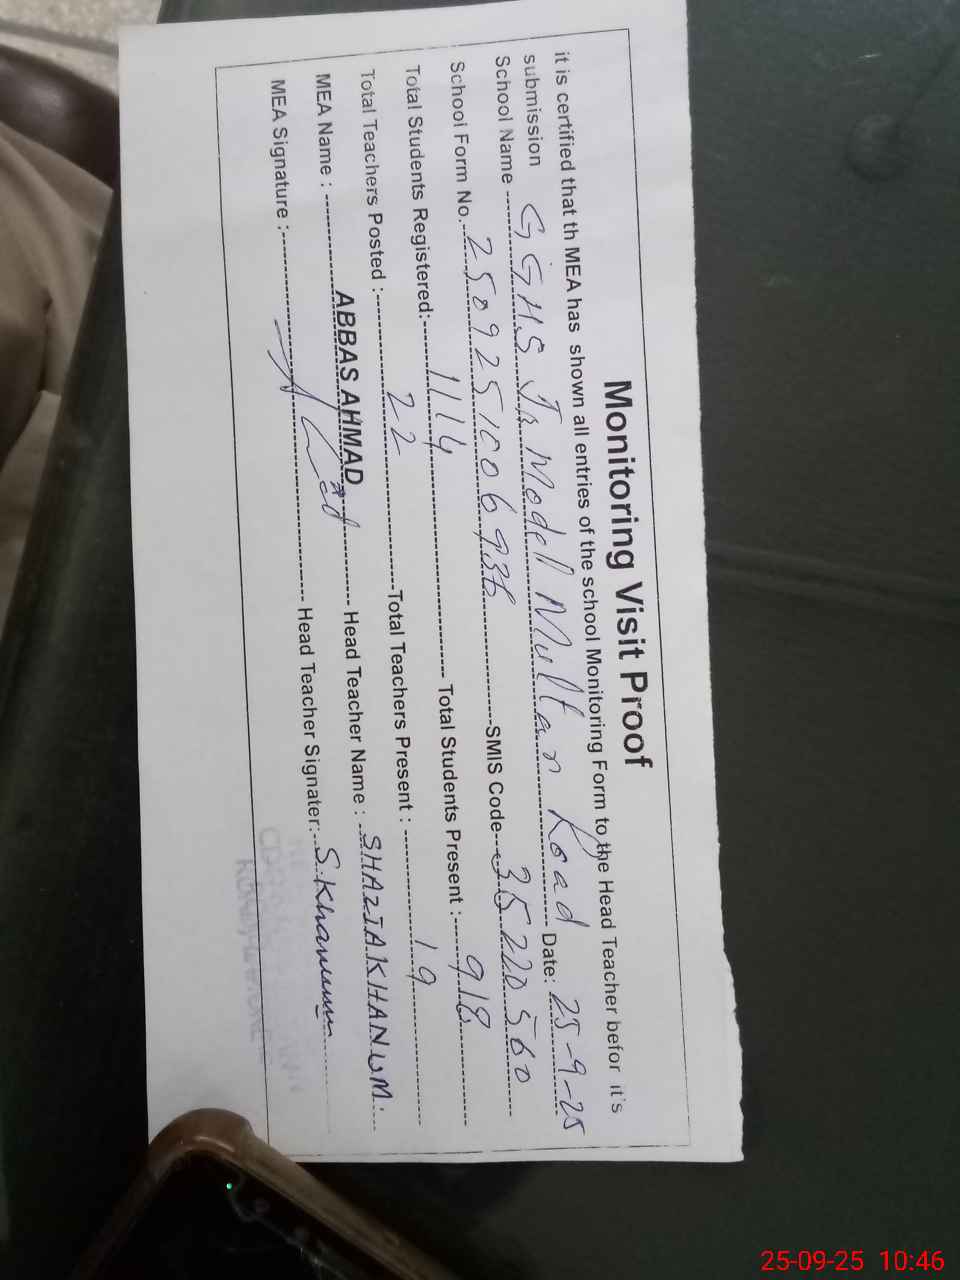 Monitoring Visit Proof
it is certified that th MEA has shown all entries of the school Monitoring Form to the Head Teacher befor it's
submission
School Name GGHS Jr Model Multan Road Date: 25-9-25
School Form No. 2509251006936 SMIS Code 35220560
Total Students Registered: 1114 Total Students Present : 918
Total Teachers Posted : 22 Total Teachers Present : 19
MEA Name : ABBAS AHMAD Head Teacher Name : SHAZIA KHANUM.
MEA Signature : Head Teacher Signater: S.Khanum
25-09-25 10:46